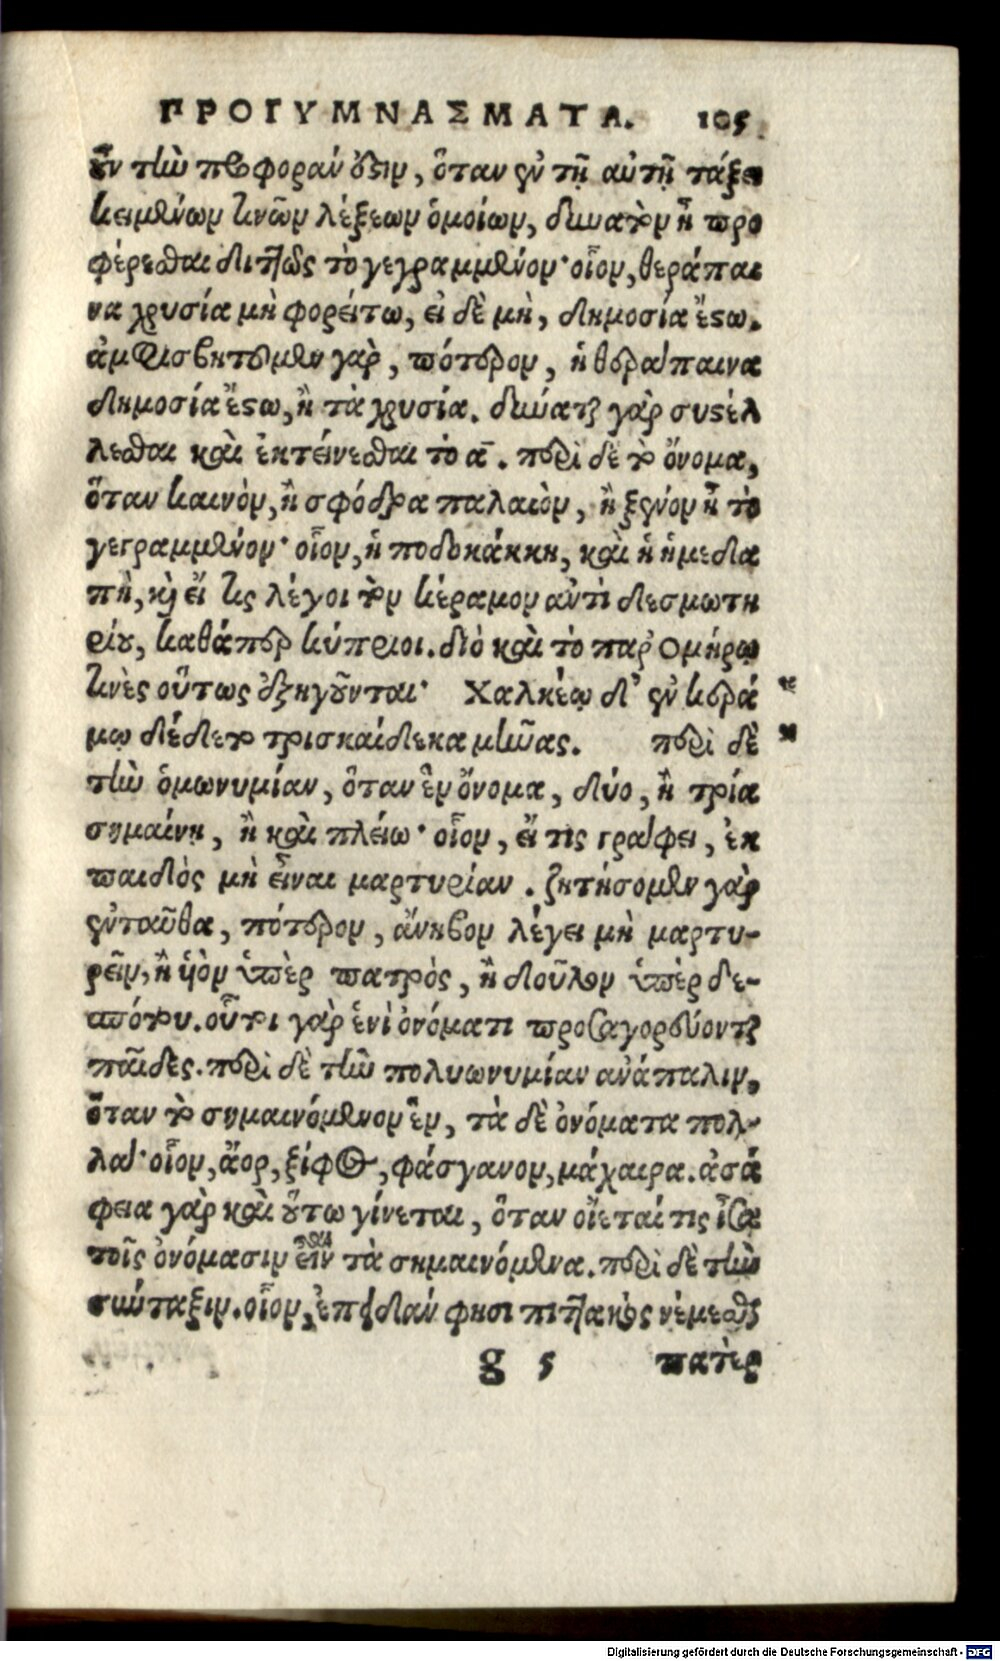 ΠΡΟΓΥΜΝΑΣΜΑΤΑ. 105
οὖν τὴν προφοράν ὅστιν, ὅταν ἐν τῇ αὐτῇ τάξει
κειμένων τινῶν λέξεων ὁμοίων, δυνατὸν ᾖ προ
φέρεσθαι διττῶς τὸ γεγραμμένον· οἷον, θεράπαι
να χρυσία μὴ φορείτω, εἰ δὲ μὴ, δημοσία ἔστω.
ἀμφισβητοῦμεν γὰρ, πότερον, ἡ θεράπαινα
δημοσία ἔστω, ἢ τὰ χρυσία. δύναται γὰρ συστέλ
λεσθαι καὶ ἐκτείνεσθαι τὸ α̅. περὶ δὲ τὸ ὄνομα,
ὅταν καινὸν, ἢ σφόδρα παλαιὸν, ἢ ξένον ᾖ τὸ
γεγραμμένον· οἷον, ἡ ποδοκάκκη, καὶ ἡ ἡμεδα
πὴ, καὶ εἴ τις λέγοι τὸν κέραμον ἀντὶ δεσμωτη
ρίου, καθάπερ κύπριοι. διὸ καὶ τὸ παρ Ὁμήρῳ
τινὲς οὕτως ἐξηγοῦνται· Χαλκέῳ δ' ἐν κερά
μῳ δέδετο τρισκαίδεκα μῆνας. περὶ δὲ
τὴν ὁμωνυμίαν, ὅταν ἓν ὄνομα, δύο, ἢ τρία
σημαίνῃ, ἢ καὶ πλείω· οἷον, εἴ τις γράφει, ἐκ
παιδὸς μὴ εἶναι μαρτυρίαν. ζητήσομεν γὰρ
ἐνταῦθα, πότερον, ἄνηβον λέγει μὴ μαρτυ-
ρεῖν, ἢ ὑὸν ὑπὲρ πατρὸς, ἢ δοῦλον ὑπὲρ δε-
σπότου. οὗτοι γὰρ ἑνὶ ὀνόματι προσαγορεύονται
παῖδες. περὶ δὲ τὴν πολυωνυμίαν ἀνάπαλιν,
ὅταν τὸ σημαινόμενον ἓν, τὰ δὲ ὀνόματα πολ-
λά· οἷον, ἄορ, ξίφος, φάσγανον, μάχαιρα. ἀσά
φεια γὰρ καὶ οὕτω γίνεται, ὅταν οἴεταί τις ἴσα
τοῖς ὀνόμασιν εἶναι τὰ σημαινόμενα. περὶ δὲ τὴν
σύνταξιν. οἷον, ἐπειδάν φησι πιττακὸς νέμεσθαι
g 5 πατέρ
Digitalisierung gefördert durch die Deutsche Forschungsgemeinschaft - DFG